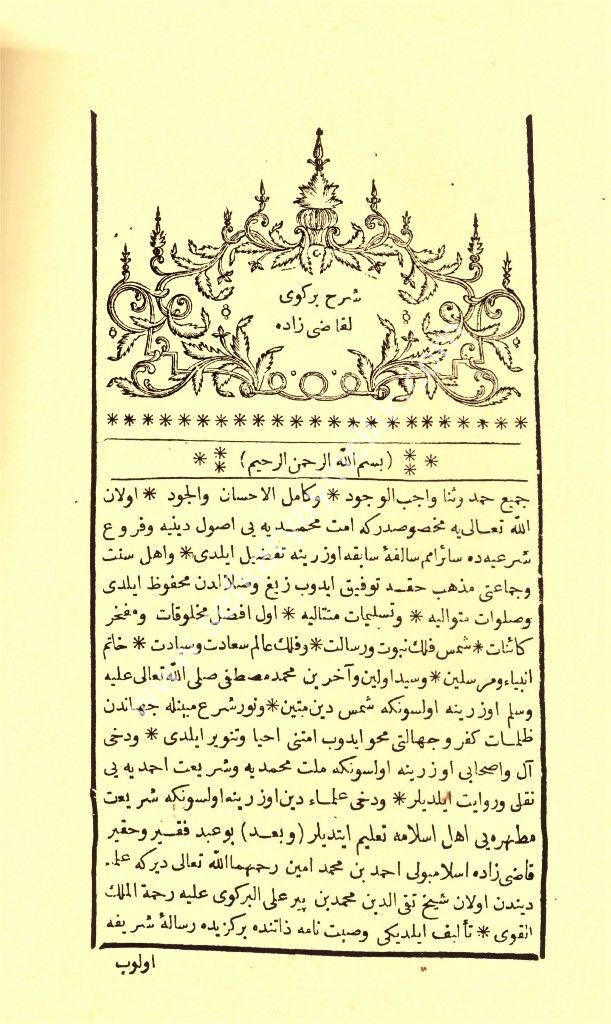 شرح بركوى
لقاضى زاده
(بسم الله الرحمن الرحيم)
جميع حمد وثنا واجب الوجود * وكامل الاحسان والجود * اولان
الله تعالى يه مخصوصدركه امت محمديه يى اصول دينيه وفروع
شرعيه ده سائر امم سالفۀ سابقه اوزرينه تفضيل ايلدى * واهل سنت
وجماعتى مذهب حقه توفيق ايدوب زيغ وضلالدن محفوظ ايلدى
وصلوات متواليه * وتسليمات متتاليه * اول افضل مخلوقات ومفخر
كائنات * شمس فلك نبوت ورسالت * وفلك عالم سعادت وسيادت * خاتم
انبياء ومرسلين * وسيد اولين وآخرين محمد مصطفى صلى الله تعالى عليه
وسلم اوزرينه اولسونكه شمس دين متين * ونور شرع مبينله جهاندن
ظلمات كفر وجهالتى محو ايدوب امتنى احيا وتنوير ايلدى * ودخى
آل واصحابى اوزرينه اولسونكه ملت محمديه وشريعت احمديه يى
نقلى وروايت ايلديلر * ودخى علماء دين اوزرينه اولسونكه شريعت
مطهره يى اهل اسلامه تعليم ايتديلر (وبعد) بو عبد فقير وحقير
قاضى زاده اسلامبولى احمد بن محمد امين رحمهما الله تعالى ديركه علماء
ديندن اولان شيخ تقى الدين محمد بن پير على البركوى عليه رحمة الملك
القوى * تأليف ايلديكى وصيت نامه ذاتنده بركزيده رسالۀ شريفه
اولوب